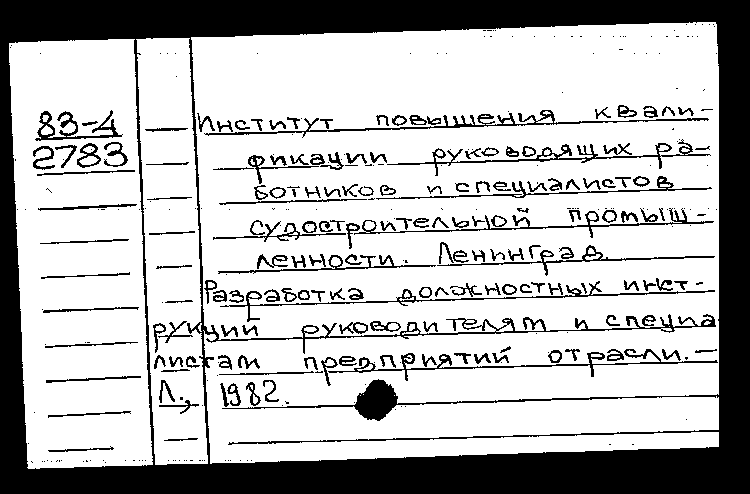 83-4
2783
Институт повышения квали-
фикации руководящих ра-
ботников и специалистов
судостроительной промыш-
ленности. Ленинград.
Разработка должностных инст-
рукций руководителям и специа
листам предприятий отрасли. —
Л., 1982.